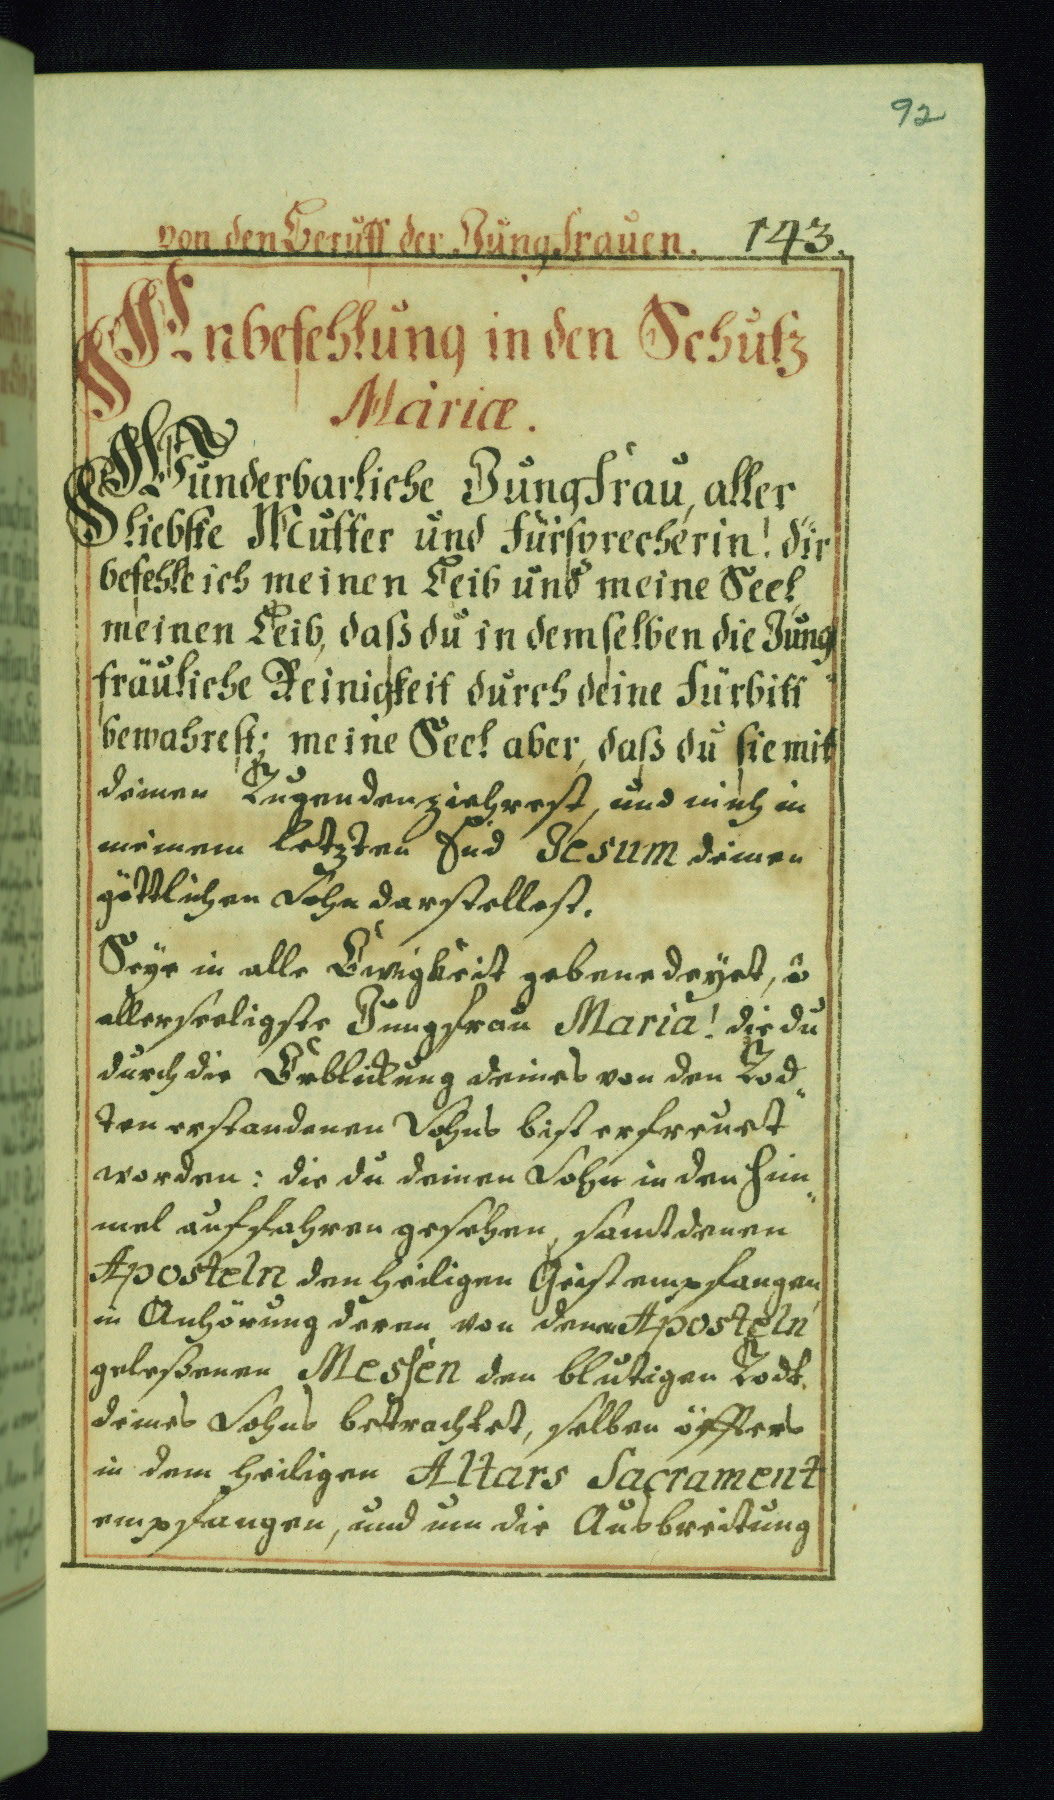 92
von den Beruff der Jungfrauen. 143.
Anbefehlung in den Schutz
Mariæ.
Wunderbarliche Jungfrau, aller
liebste Mutter und Fürsprecherin! dir
befehle ich meinen Leib und meine Seel,
meinen Leib, daß du in demselben die Jung„
fräuliche Reinigkeit durch deine Fürbitt
bewahrest; meine Seel aber, daß du sie mit
deinen Tugenden ziehrest, und mich in
meinem letzten End Jesum deinen
göttlichen Sohn darstellest.
Seye in alle Ewigkeit gebenedeyet, ô
allerseeligste Jungfrau Maria! die du
durch die Erblickung deines von den Tod„
ten erstandenen Sohns bist erfreuet
worden: die du deinen Sohn in den Him„
mel auffahren gesehen, samt denen
Aposteln den heiligen Geist empfangen,
in Anhörung deren von denen Aposteln
geleßenen Messen den blutigen Todt
deines Sohns betrachtet, selben öffters
in dem heiligen Altars Sacrament
empfangen, und um die Ausbreitung